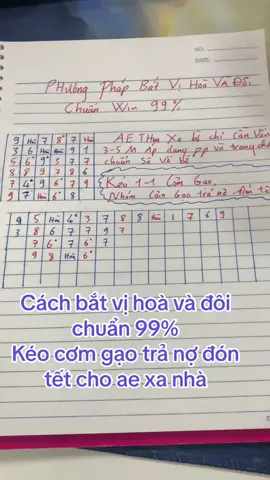 NO.
DATE
Phương Pháp Bắt Vị Hoà Và Đôi
Chuẩn Win 99%
9 Hoà 7 8° 7 Hoà
3 6 Hoà Hoà 9 1
5 6° 9° 3 7 7
8 8 9 7 8 6
7 4° 9 6° 7 9
9 7 Hoà 6° 8
AE Thua Xa bờ chỉ cần Vốn
3-5 M Áp dụng pp và trong
chuẩn Sẽ Về Bờ
Kéo 1-1 Cơm Gạo
Nhóm Cơm Gạo trả nợ Đón tế
9 5 Hoà 4° 3 7 8 8 Hoà 1 7 6 9
3 8 6 7 7 9 7
7 6° 7 6° 7
9 8 Hoà 6°
Cách bắt vị hoà và đôi
chuẩn 99%
Kéo cơm gạo trả nợ đón
tết cho ae xa nhà